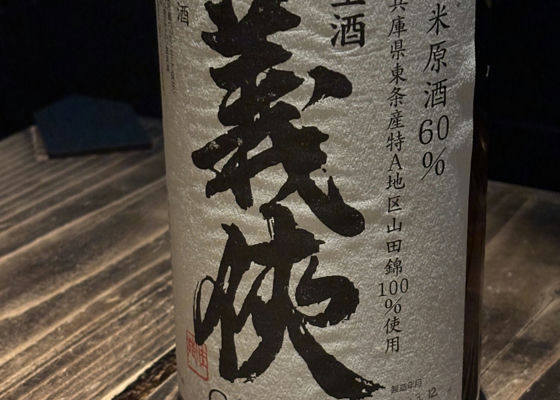 米原酒60%
兵庫県東条産特A地区山田錦100%使用
生酒
義侠
酒
製造年月
12